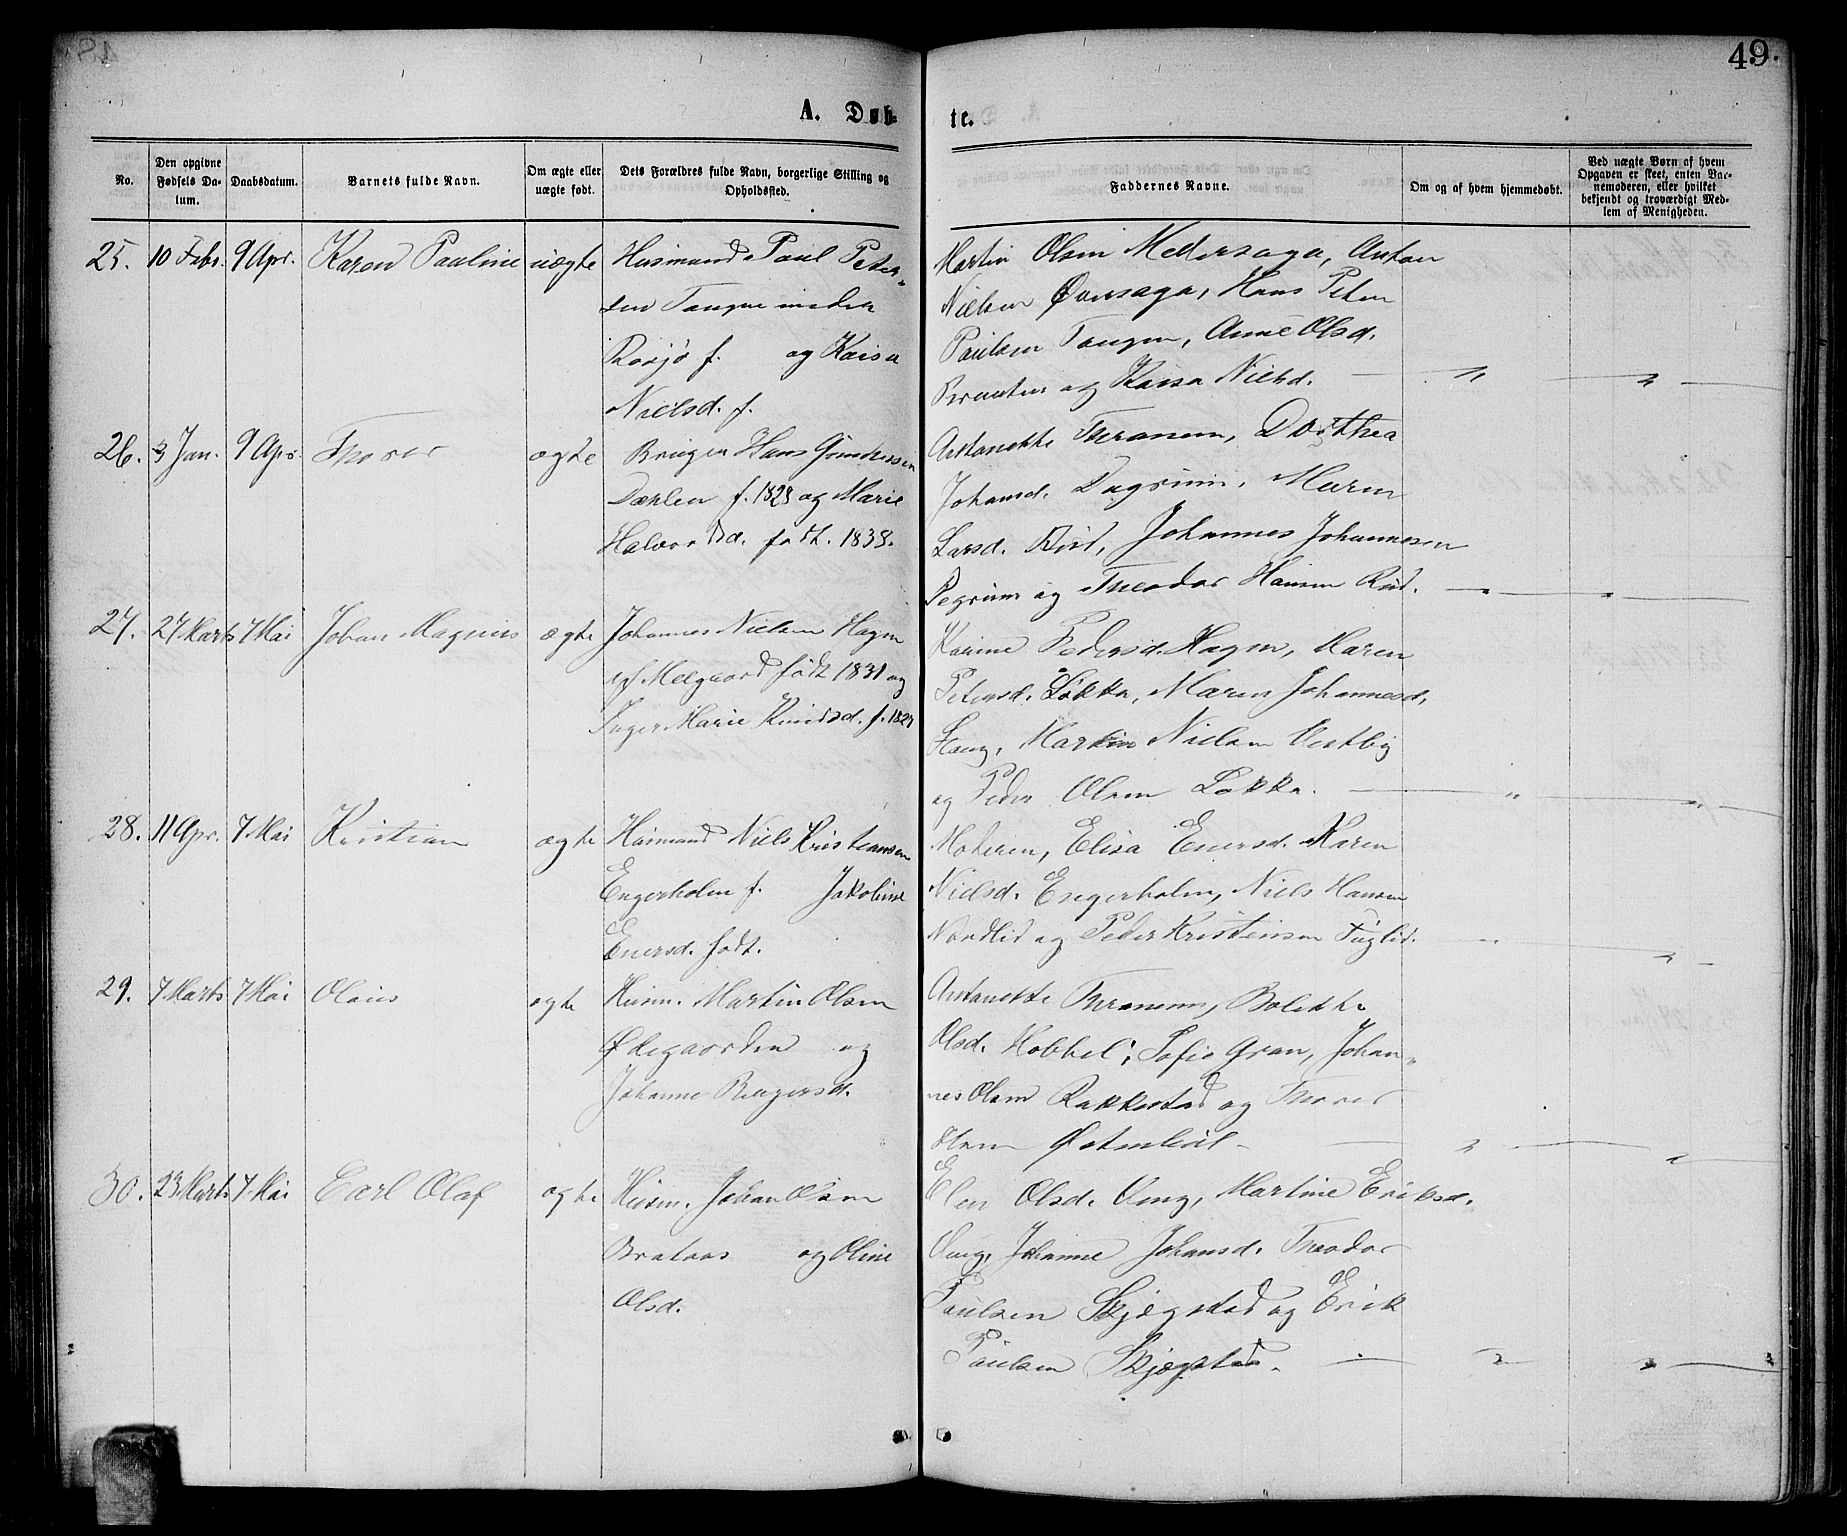 49.
A. Døb-
te.
No.
Den opgivne Fødsels Da-tum.
Daabsdatum.
Barnets fulde Navn.
Om ægte eller uægte født.
Dets Forældres fulde Navn, borgerlige Stilling og Opholdssted.
Faddernes Navne.
Om og af hvem hjemmedøbt.
Ved uægte Børn af hvem Opgaven er skeet, enten Bar-nemoderen, eller hvilket bekjendt og troværdigt Med-lem af Menigheden.
25. 10 Febr. 9 Apr. Karen Pauline uægte Husmand Paul Peder-
sen Tangen
f. og Kaisa
Nielsd. f.
Martin Olsen Anton
Nielsen Hans Peter
Paulsen Tangen, Anne Olsd.
og Kaisa Nielsd. — " — " —
26. 3 Jan. 9 Apr. Thorer ægte Brugen Hans
Dæhlen f. 1828 og Marie
Halvorsd. født. 1838.
Antonette Dorthea
Johansd. Maren
Larsd. Johannes Johannesen
og Theodor Hansen — " — " —
27. 27 Marts 7 Mai Johan Magnus ægte Johannes Nielsen Hagen
født 1831 og
Inger Marie Knudsd. f. 1829
Karine Pedersd. Hagen, Karen
Petersd. Løkka, Maren Johannesd.
Haug, Martin Nielsen Vestby
og Peder Olsen Løkka. — " — " —
28. 11 Apr. 7 Mai Kristian ægte Husmand Niels Kristiansen
Engerholm f. Jakobine
Enersd. født.
Moderen, Elisa Enersd. Karen
Nielsd. Engerholm, Niels Hansen
Nordlid og Peder Kristensen Fuglid. — " — " —
29. 7 Marts 7 Mai Olaus ægte Husm. Martin Olsen
Ødegaarden og
Johanne
Antonette Bolette
Olsd. Hobbel, Sofie Gran, Johan-
nes Olsen Rakkestad og Thorer
Olsen — " — " —
30. 23 Marts 7 Mai Carl Olaf ægte Husm. Johan Olsen
Brataas og Oline
Olsd.
Elen Olsd. Martine Eriksd.
Johanne Johansd. Theodor
Paulsen Skjægstad og Erik
Paulsen Skjægstad. — " — " —